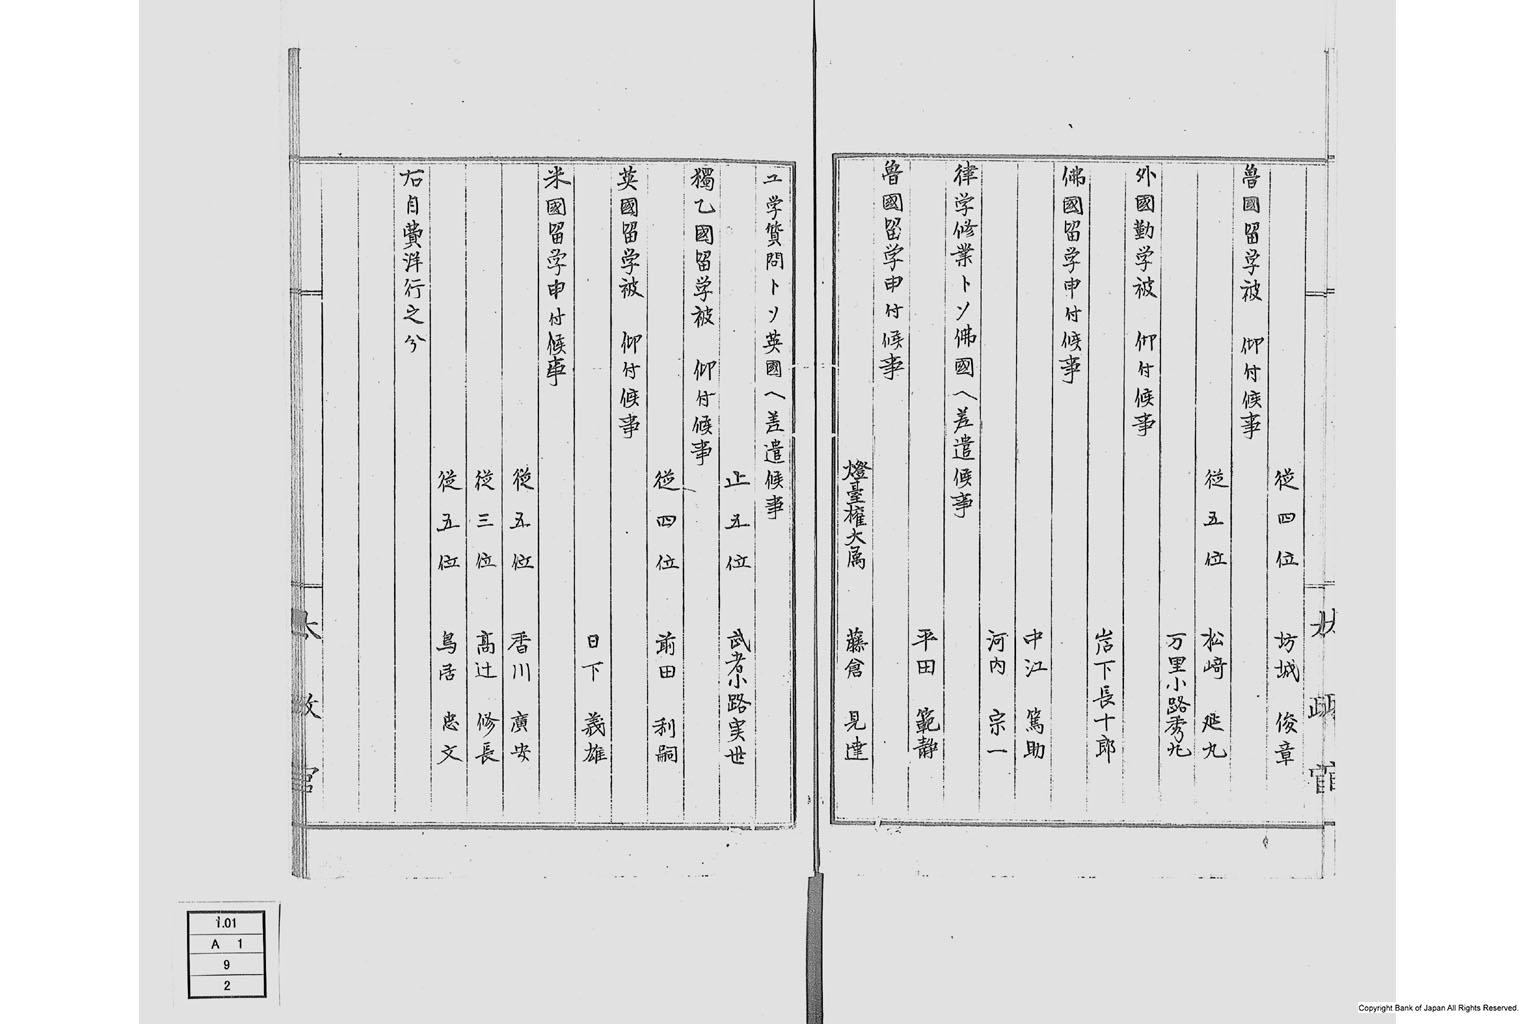 從四位 坊城 俊章
魯國留学被 仰付候事
從五位 松﨑 延丸
万里小路秀丸
外國勤学被 仰付候事
岩下長十郎
佛國留学申付候事
中江 篤助
河内 宗一
律学修業トソ佛國ヘ差遣候事
平田 範静
魯國留学申付候事
燈臺權大属 藤倉 見達
エ学質問トソ英國ヘ差遣候事
正五位 武者小路実世
獨乙國留学被 仰付候事
從四位 前田 利嗣
英國留学被 仰付候事
日下 義雄
米國留学申付候事
從五位 香川 廣安
從三位 高辻 修長
從五位 鳥居 忠文
右自費洋行之分
太政官
1.01
A 1
9
2
Copyright Bank of Japan All Rights Reserved.